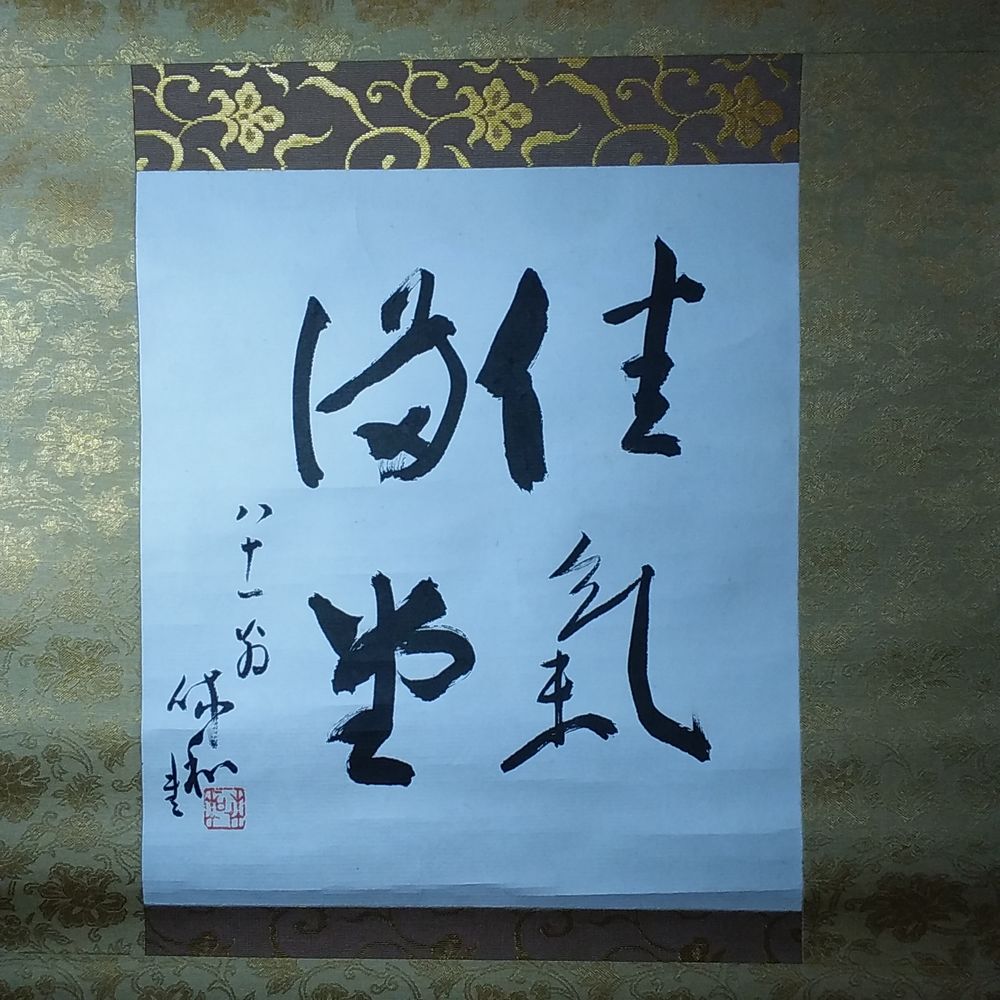 佳氣
満堂
八十一翁
保和書